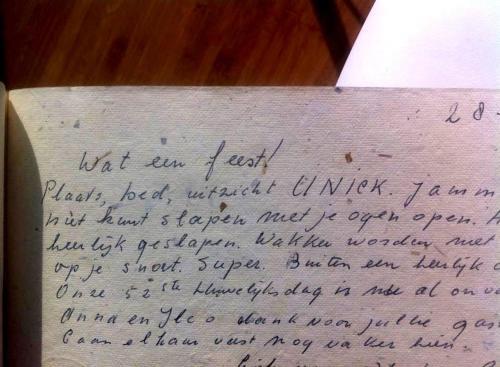 28-
Wat een feest!
Plaats, bed, uitzicht UNICK. Jamm
niet kunt slapen met je ogen open. H
heerlijk geslapen. Wakker worden met
op je snort. Super. Buiten een heerlijk
Onze 52ste Huwelijksdag is nu al onv
Anna en Ilco dank voor jullie gas
vast nog vaker hier.